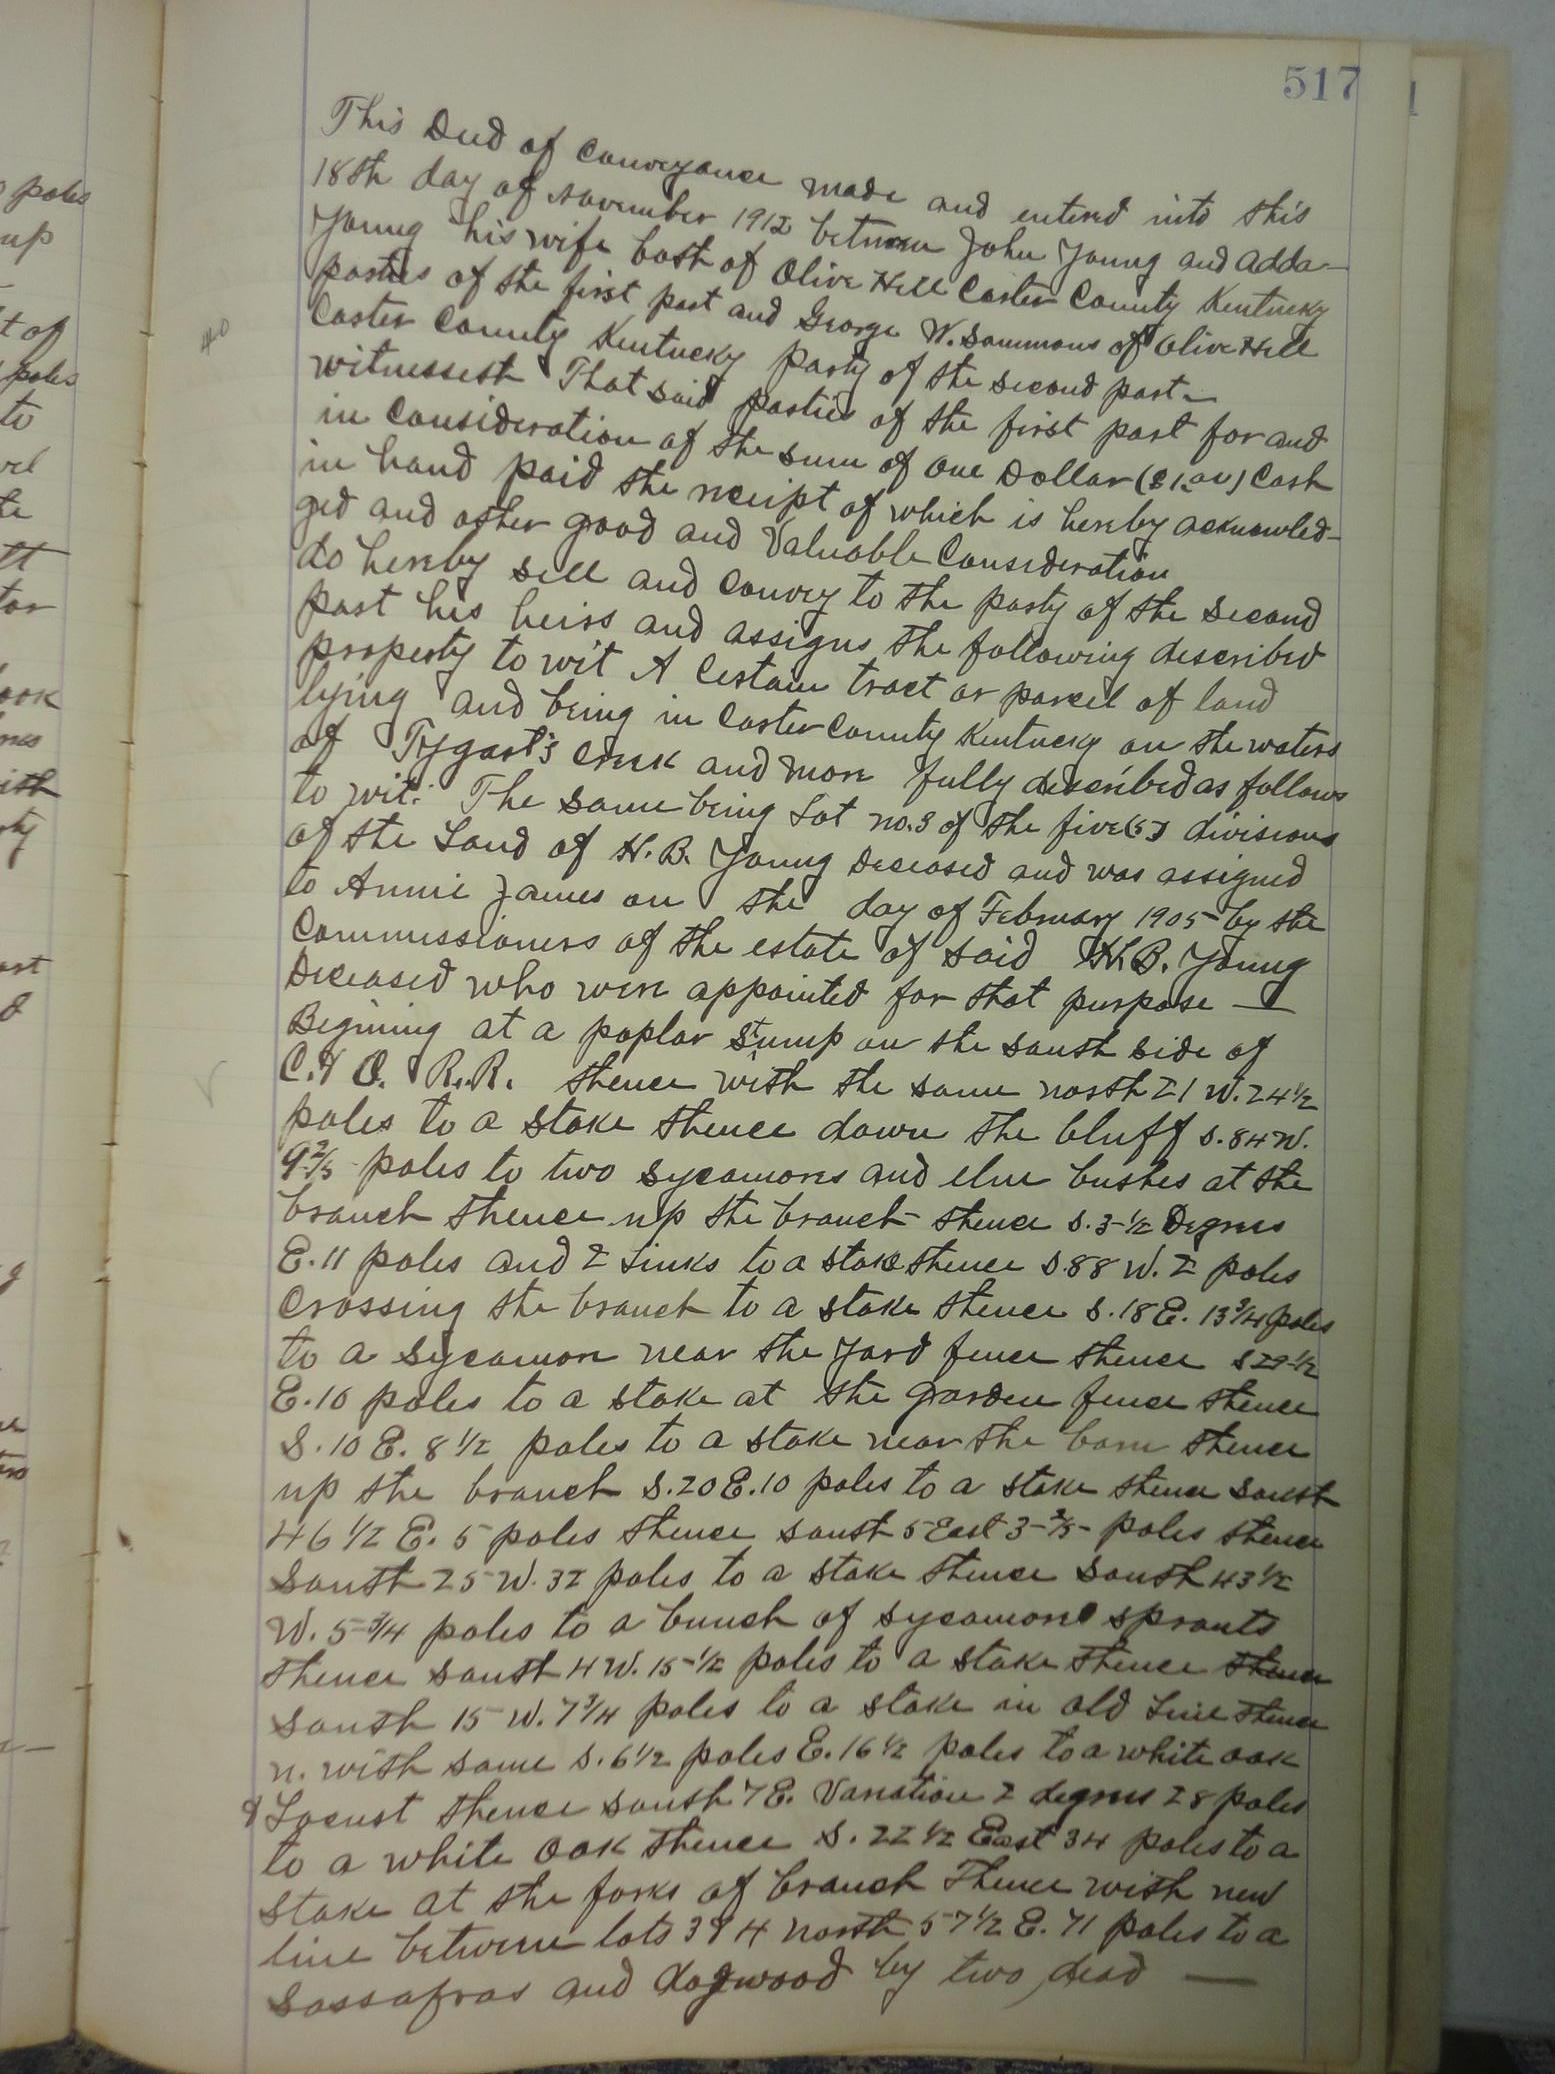 517
This Deed of Conveyance made and entered into this
18th day of November 1912 between John Young and Adda
Young his wife both of Olive Hill Carter County Kentucky
parties of the first part and George W. Sammons of Olive Hill
Carter County Kentucky party of the second part
witnesseth That said parties of the first part for and
in consideration of the sum of One Dollar ($1.00) Cash
in hand paid the receipt of which is hereby acknowled-
ged and other good and Valuable Consideration
do hereby sell and convey to the party of the second
part his heirs and assigns the following described
property to wit A Certain tract or parcel of land
lying and being in Carter County Kentucky on the waters
of Tygart's Creek and more fully described as follows
to wit: The same being Lot no. 3 of the five (5) divisions
of the Land of H. B. Young Deceased and was assigned
to Annie James on the day of February 1905 by the
Commissioners of the estate of said H. B. Young
Deceased who were appointed for that purpose —
Begining at a poplar stump on the south side of
C. & O. R.R. thence with the same north 21 W. 24 1/2
poles to a stake thence down the bluff S. 84 W.
9 2/5 poles to two sycamores and elm bushes at the
branch thence up the branch thence S. 3 1/2 Degrees
E. 11 poles and 2 Links to a stake thence S. 88 W. 2 poles
Crossing the branch to a stake thence S. 18 E. 13 3/4 poles
to a sycamore near the yard fence thence S 29 1/2
E. 10 poles to a stake at the garden fence thence
S. 10 E. 8 1/2 poles to a stake near the barn thence
up the branch S. 20 E. 10 poles to a stake thence south
46 1/2 E. 5 poles thence south 5 East 3 2/5 poles thence
South 25 W. 32 poles to a stake thence South 43 1/2
W. 5 3/4 poles to a bunch of sycamore sprouts
thence south 4 W. 15 1/2 poles to a stake thence thence
south 15 W. 7 3/4 poles to a stake in old Line thence
n. with same S. 6 1/2 poles E. 16 1/2 poles to a white oak
& Locust thence south 7 E. Variation 2 degrees 28 poles
to a white oak thence S. 22 1/2 East 34 poles to a
stake at the forks of branch Thence with new
line between lots 3 & 4 north 57 1/2 E. 71 poles to a
sassafras and dogwood by two dead —